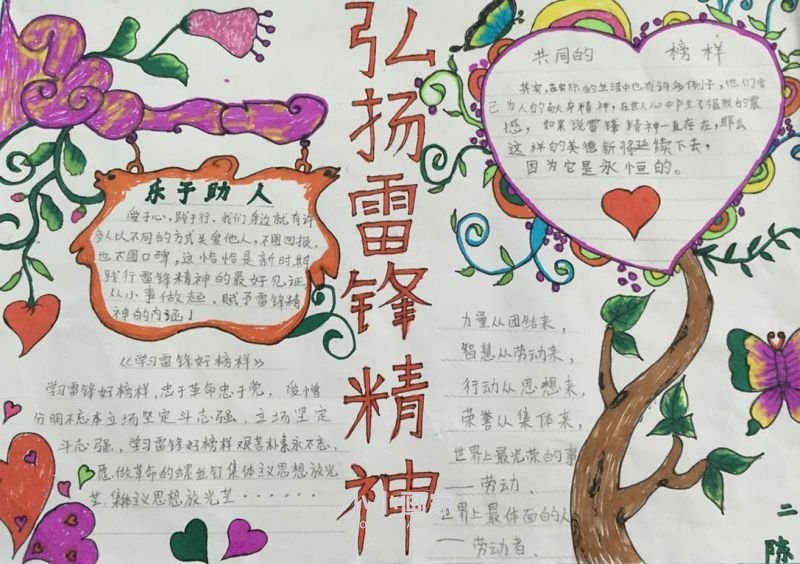 弘扬雷锋精神
共同的 榜样
其实,在实际的生活中也有许多例子,他们舍
己为人的献身精神,在世人心中产生了强烈的震
撼,如果说雷锋精神一直存在,那么
这样的美德新将延续下去,
因为它是永恒的。
乐于助人
爱于心,践于行。我们身边就有许
多人以不同的方式关爱他人,不图回报,
也不图口碑,这恰恰是新时期
践行雷锋精神的最好见证
从小事做起、赋予雷锋精
神的内涵!
《学习雷锋好榜样》
学习雷锋好榜样,忠于革命忠于党,爱憎
分明不忘本立场坚定斗志强,立场坚定
斗志强,学习雷锋好榜样艰苦朴素永不忘,
愿做革命的螺丝钉集体主义思想放光
芒,集体主义思想放光芒······
力量从团结来,
智慧从劳动来,
行动从思想来,
荣誉从集体来,
世界上最光荣的事
——劳动、
世界上最体面的人
——劳动者、
二
陈